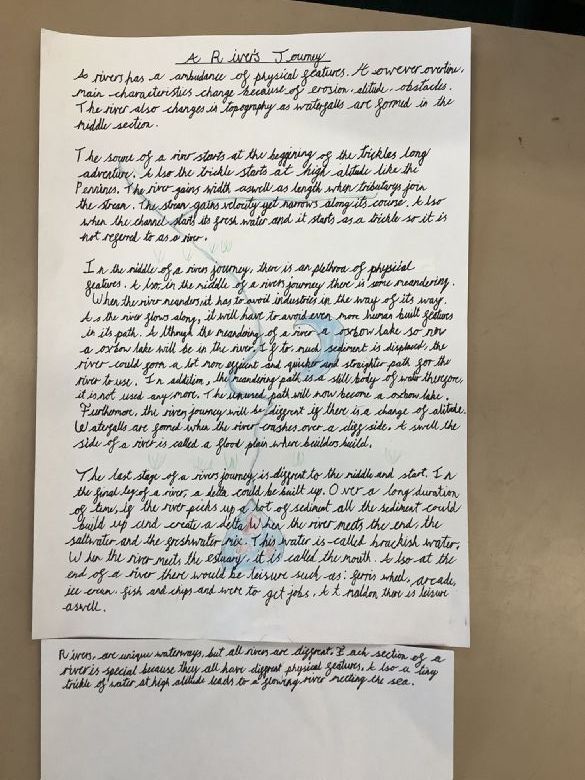 A River's Journey
As rivers has a ambundance of physical features. However overtime,
main characteristics change because of erosion, altitude, obstacles.
The river also changes in topography as waterfalls are formed in the
middle section.
The source of a river starts at the beggining of the trickles long
adventure. Also the trickle starts at high altitude like the
Pennines. The river gains width aswell as length when tributarys join
the stream. The stream gains velocity yet narrows along its course. Also
when the channel starts its fresh water and it starts as a trickle so it is
not referred to as a river.
In the middle of a rivers journey, there is an plethroa of physical
features. Also, in the middle of a rivers journey there is some meandering.
When the river meanders, it has to avoid industries in the way of its way.
As the river flows along, it will have to avoid even more human built features
in its path. Although the meandering of a river a oxbow lake so now
a oxbow lake will be in the river. If to, much sediment is displaced, the
river could form a lot more efficent and quicker and straighter path for the
river to use. In addition, the meandering path is a still body of water therefore,
it is not used any more. The unused path will now become a oxbow lake.
Furthomore, the river journey will be diffrent if there is a change of alitude.
Waterfalls are formed when the river crashes over a cliff side. Aswell the
side of a river is called a flood plain where builders build.
The last stage of a rivers journey is diffrent to the middle and start. In
the final leg of a river, a delta could be built up. Over a long duration
of time, if the river picks up a hot of sediment all the sediment could
build up and create a delta. When the river meets the end, the
saltwater and the freshwater mix. This water is called brackish water,
When the river meets the estuary, it is called the mouth. Also at the
end of a river there would be leisure such as: ferris wheel, arcade,
ice cream, fish and chips and were to get jobs. At maldon there is leisure
aswell.
Rivers, are unique waterways, but all rivers are diffrent. Each section of a
river is special because they all have diffrent physical features, Also a tiny
trickle of water at high altitude leads to a flowing river meeting the sea.